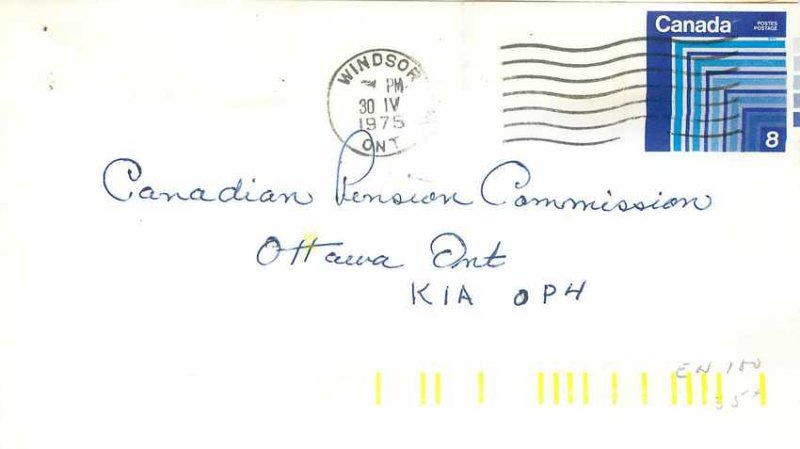 Canada POSTES
POSTAGE
8
WINDSOR
PM
30 IV
1975
ONT
Canadian Pension Commission
Ottawa Ont
K1A 0P4
EN 180